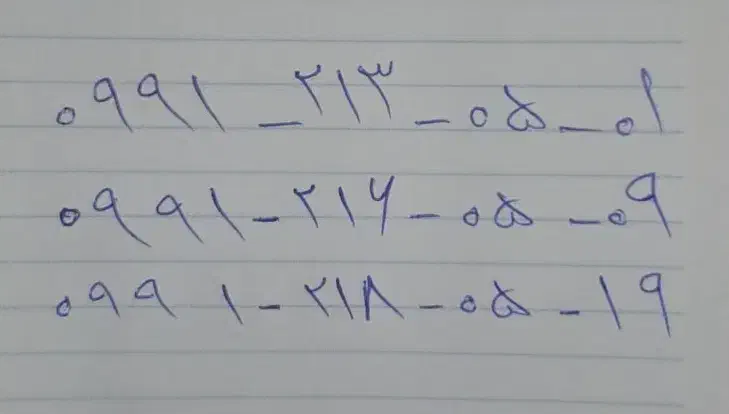 ۰۹۹۱-۲۱۳-۰۵-۰۱
۰۹۹۱-۲۱۶-۰۵-۰۹
۰۹۹۱-۲۱۸-۰۵-۱۹